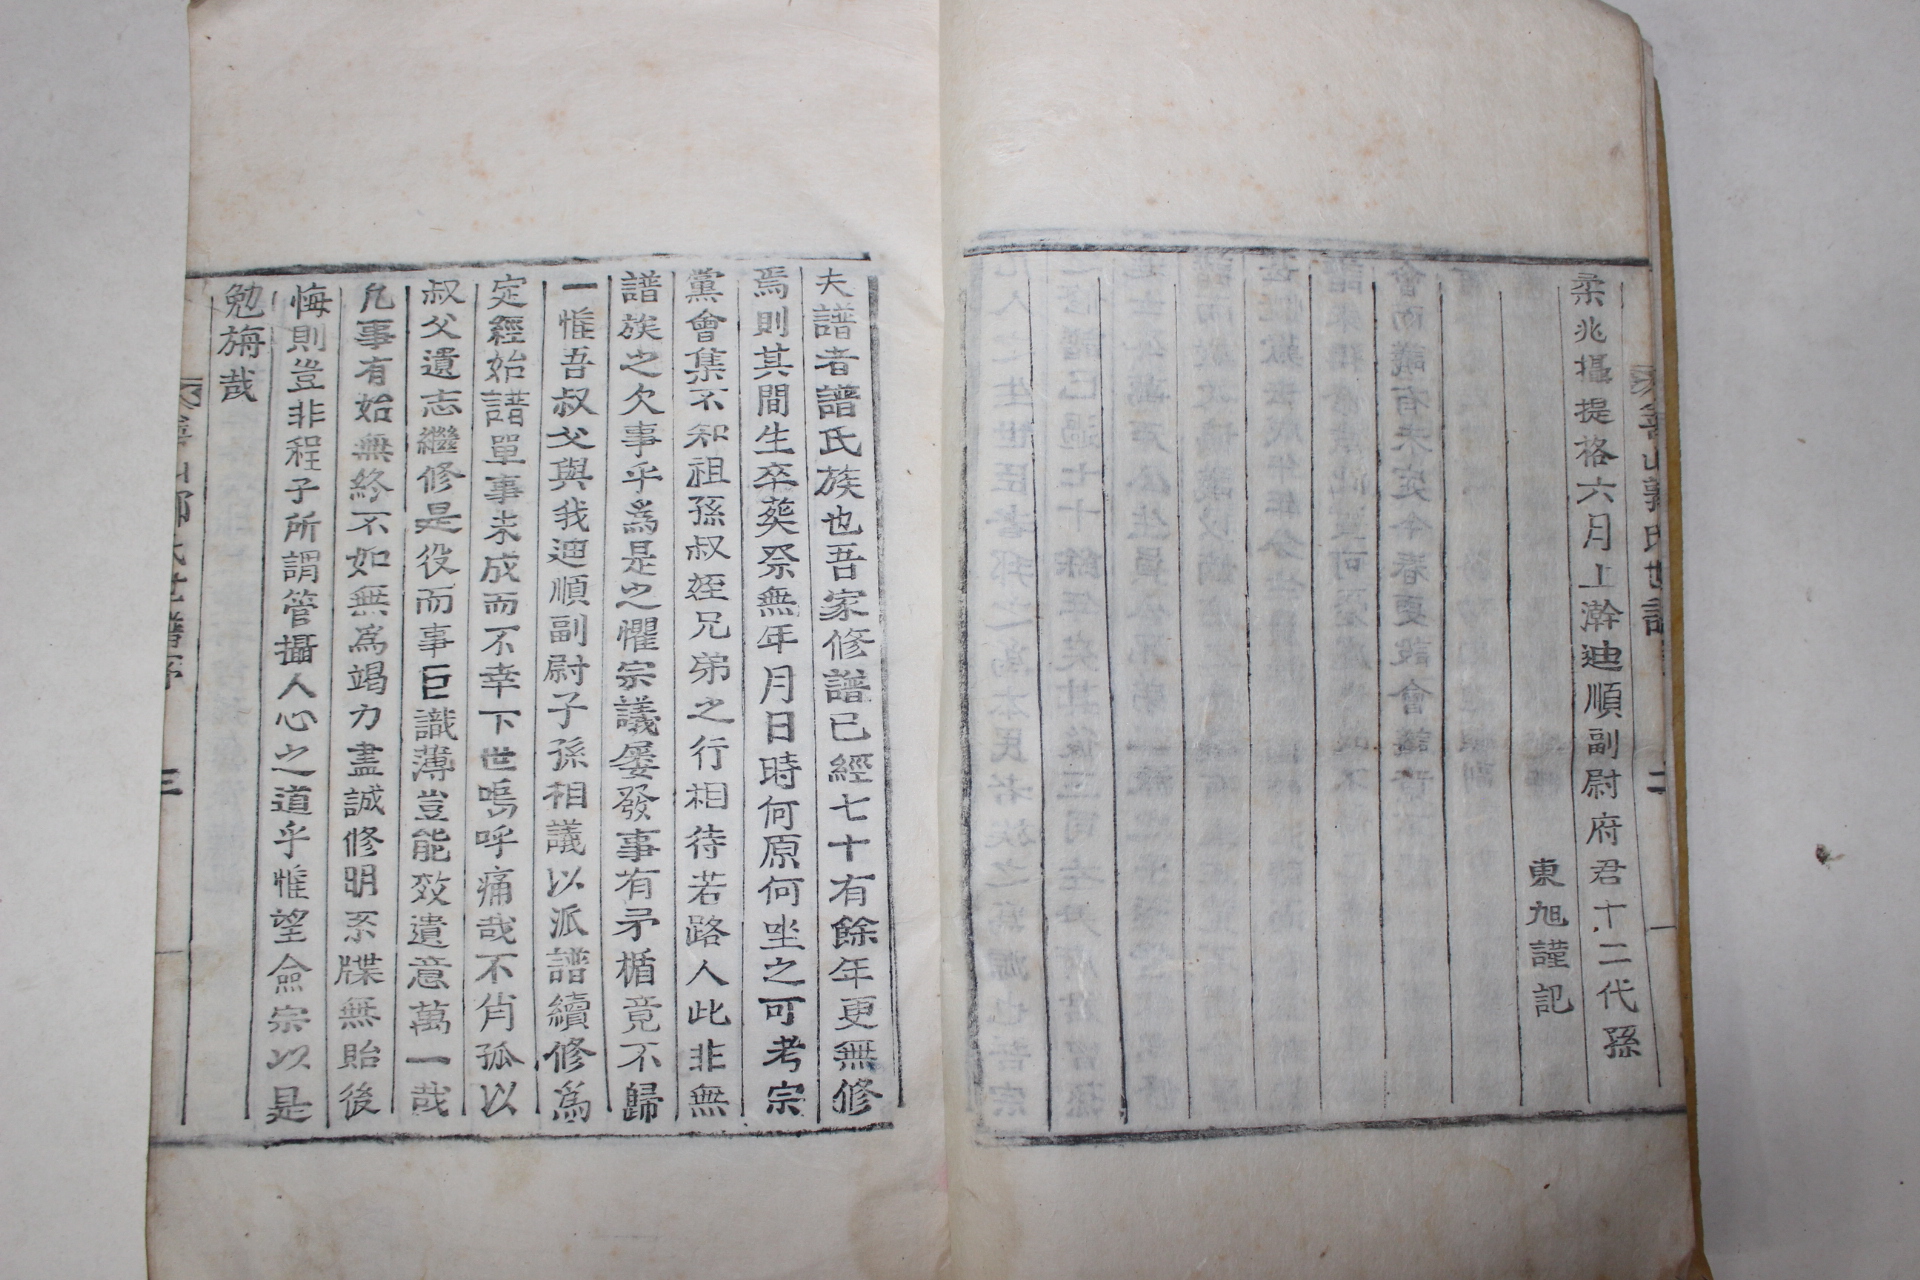 柔兆攝提格六月上澣迪順副尉府君十二代孫
東旭謹記
夫譜者譜氏族也吾家修譜已經七十有餘年更無修
焉則其間生卒葬祭無年月日時何原何坐之可考宗
黨會集不知祖孫叔姪兄弟之行相待若路人此非無
譜族之欠事乎爲是之懼宗議屢發事有矛楯竟不歸
一惟吾叔父與我迪順副尉子孫相議以派譜續修爲
定經始譜單事未成而不幸下世嗚呼痛哉不肖孤以
叔父遺志繼修是役而事巨識薄豈能效遺意萬一哉
凡事有始無終不如無爲竭力盡誠修明系牒無貽後
悔則豈非程子所謂管攝人心之道乎惟望僉宗以是
勉旃哉
三